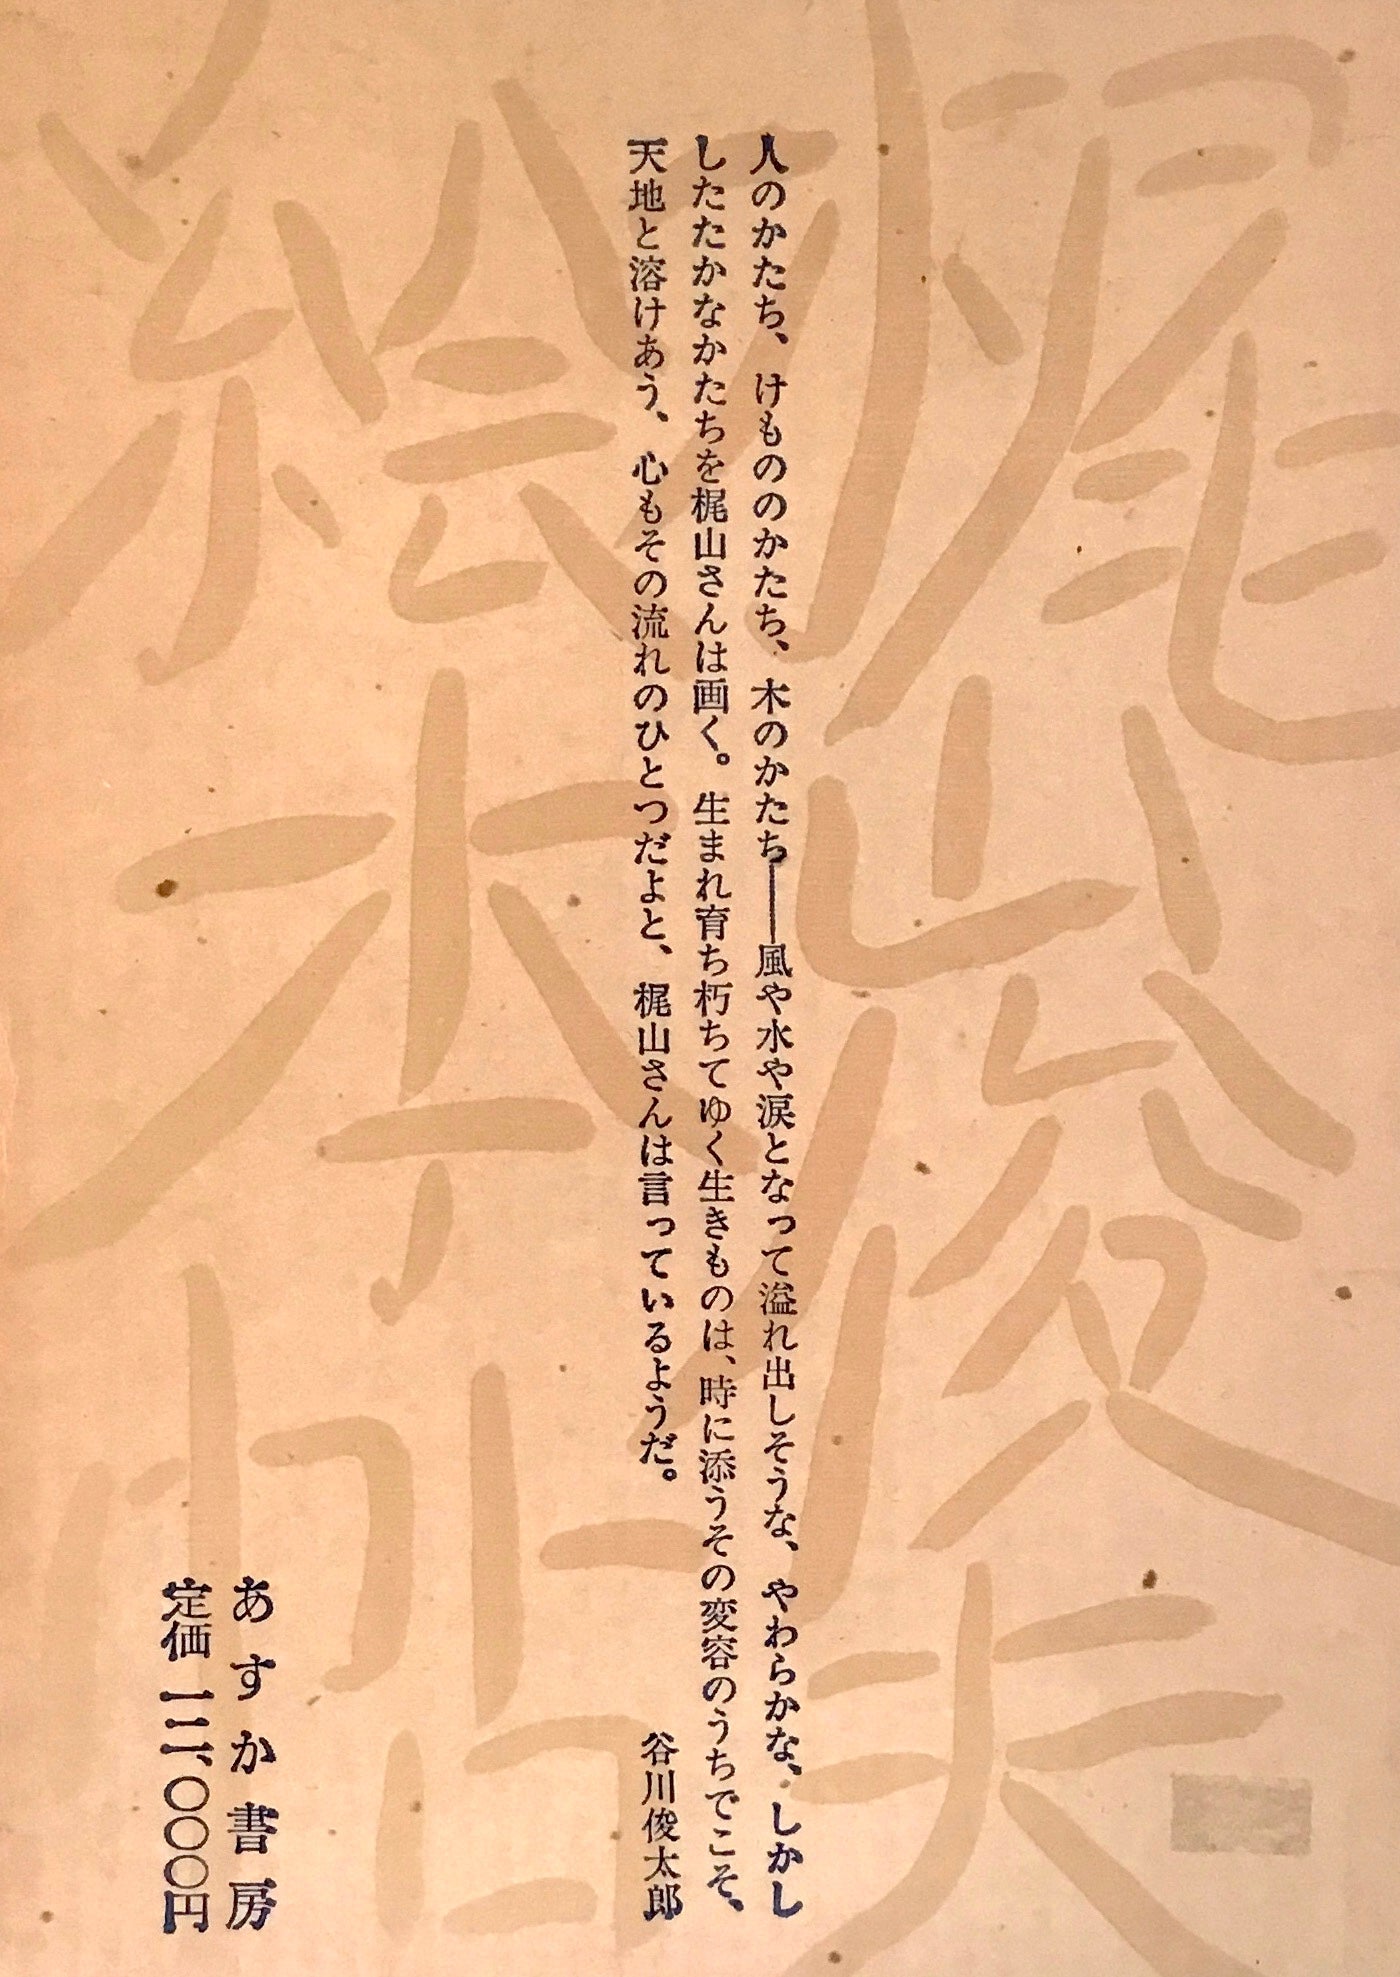 人のかたち、けもののかたち、木のかたち──風や水や涙となって溢れ出しそうな、やわらかな、しかし
したたかなかたちを梶山さんは画く。生まれ育ち朽ちてゆく生きものは、時に添うその変容のうちでこそ、
天地と溶けあう、心もその流れのひとつだよと、梶山さんは言っているようだ。
谷川俊太郎
あすか書房
定価一二、〇〇〇円
梶山俊夫
絵本帖